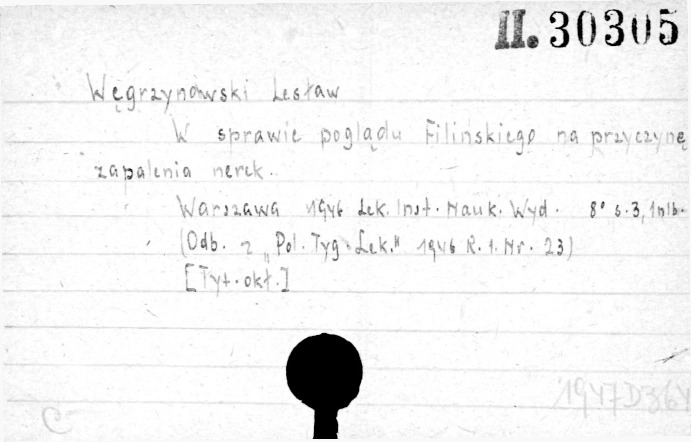 II. 30305
Węgrzynowski Lesław
W sprawie poglądu Filińskiego na przyczynę
zapalenia nerek.
Warszawa 1946 Lek. Inst. Nauk. Wyd. 8° s. 3, 1 nlb.
(Odb. z „Pol. Tyg. Lek." 1946 R. 1. Nr. 23)
[Tyt. okł.]
1947D364
C